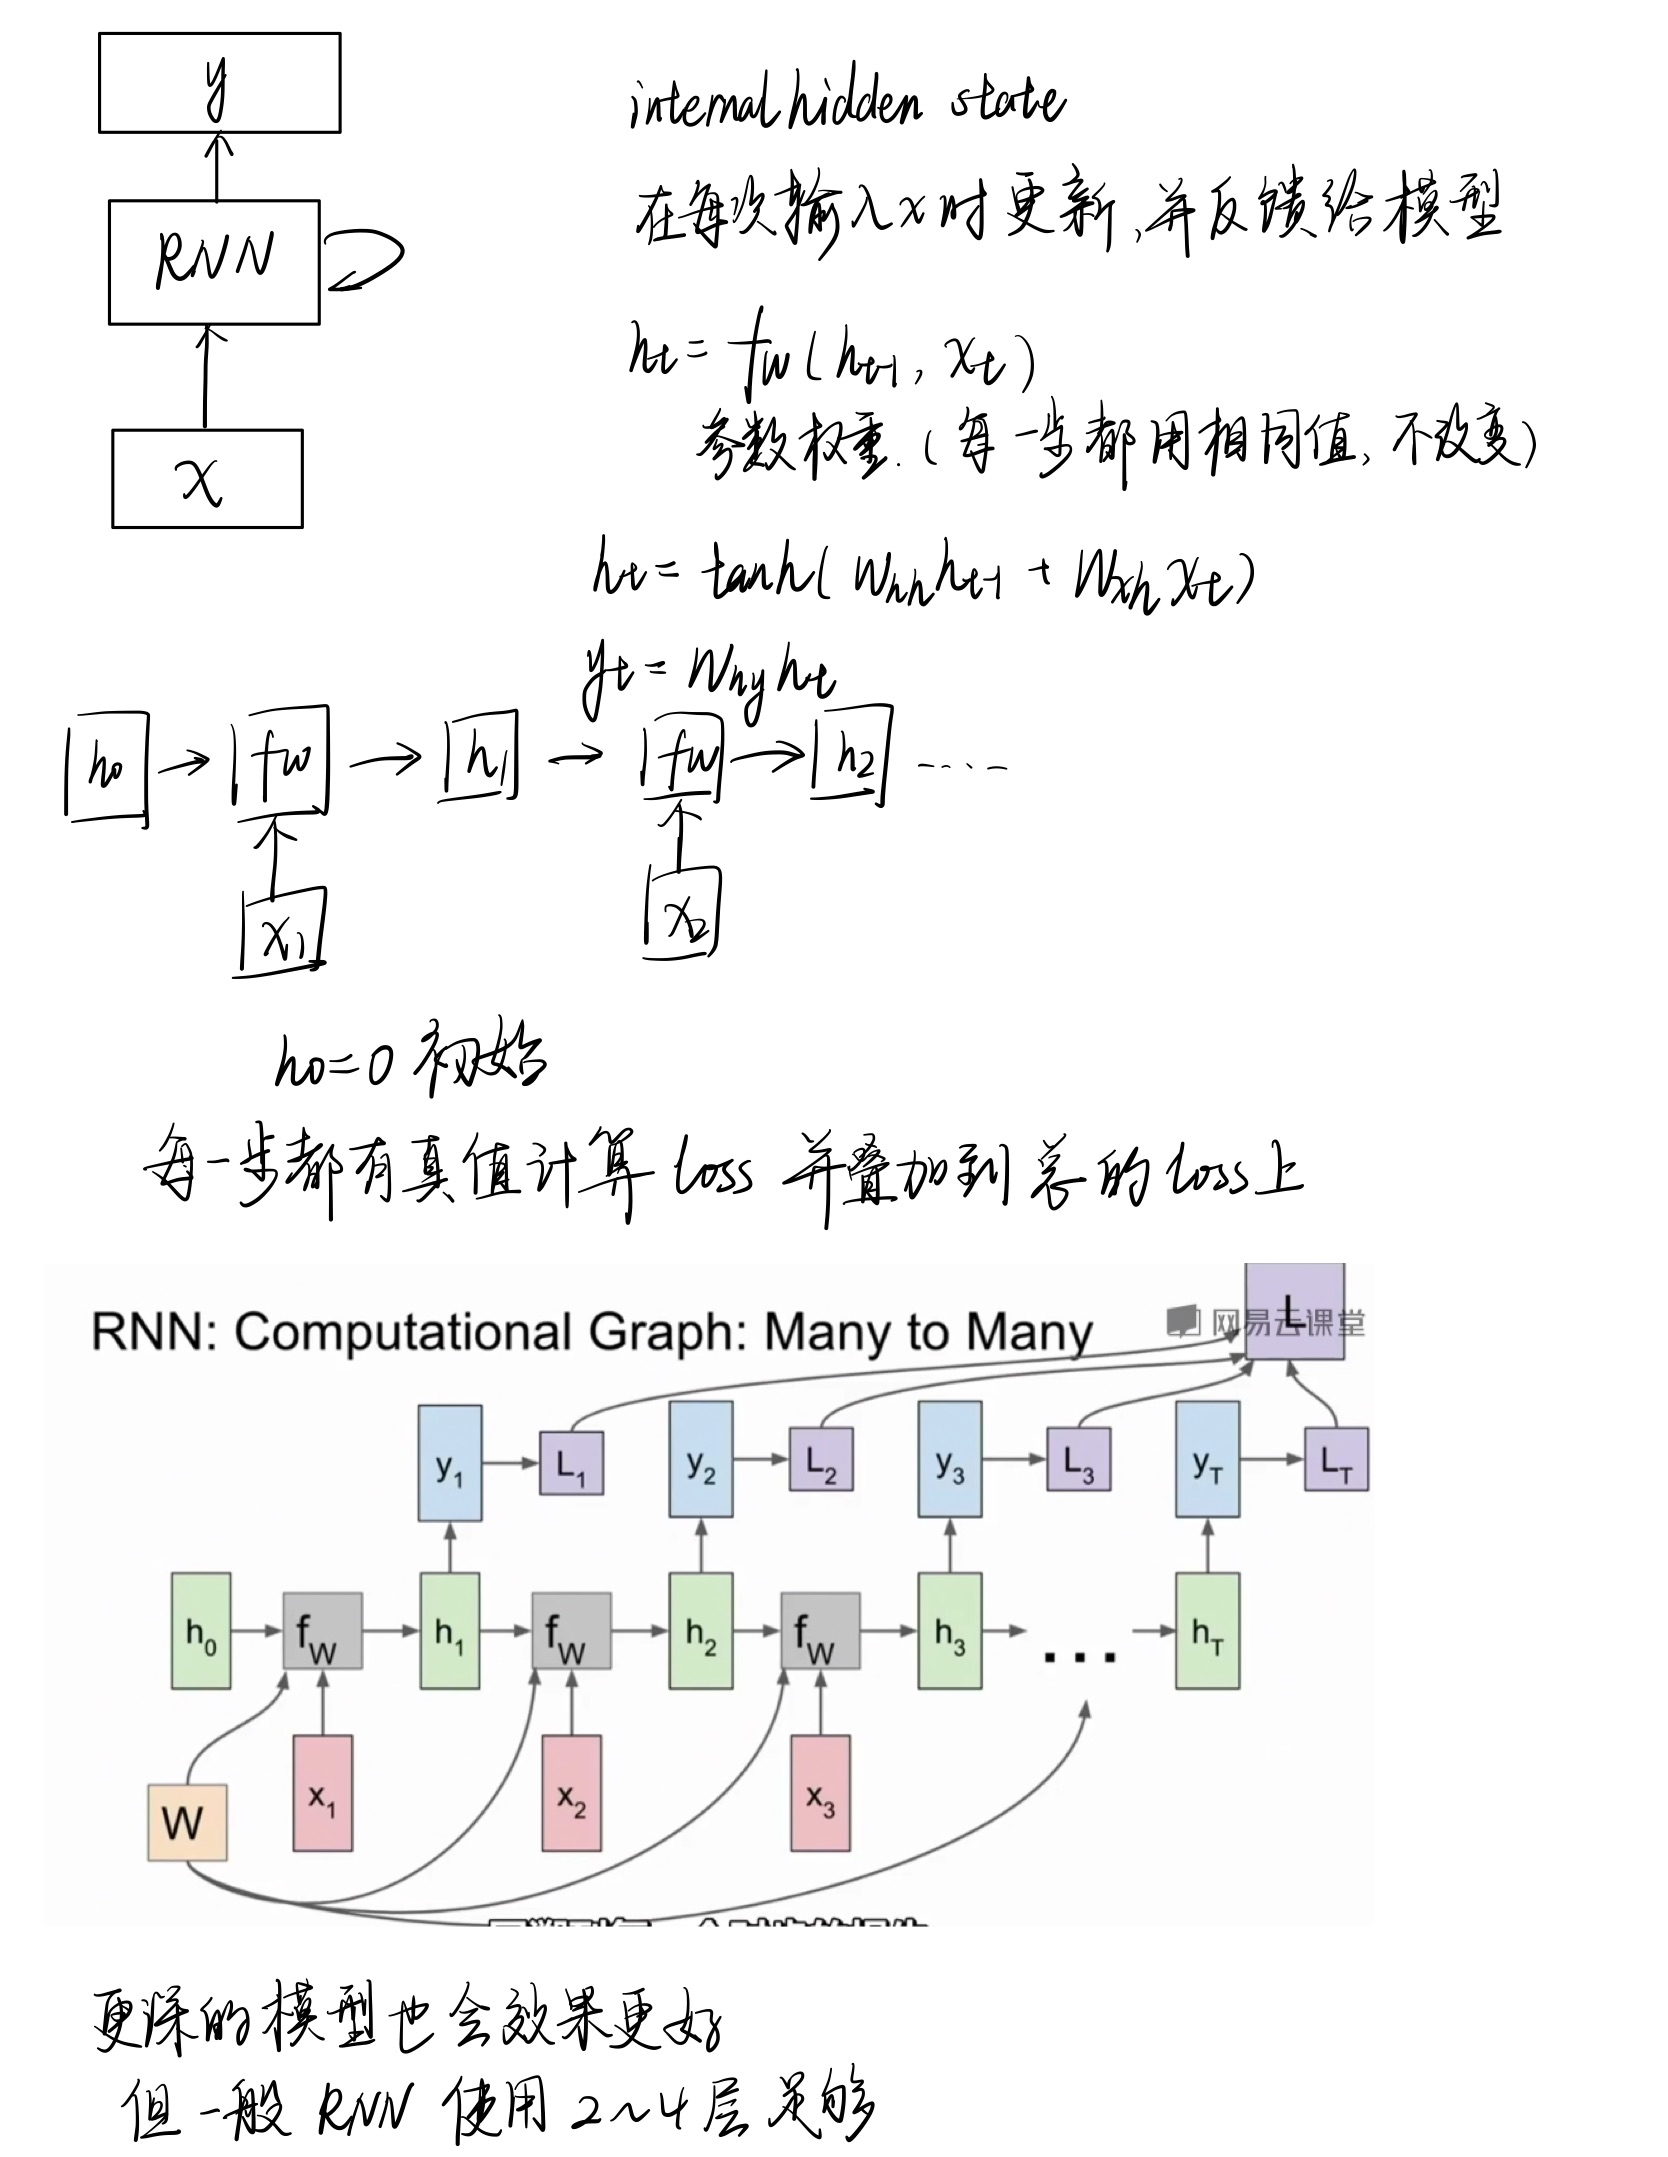 y
internal hidden state
RNN
在每次输入x时更新,并反馈给模型
ht = fw(ht-1, xt)
参数权重.(每一步都用相同值,不改变)
x
ht = tanh(Whhht-1 + Wxhxt)
yt = Whyht
h0 → fw → h1 → fw → h2 .....
x1 x2
h0=0 初始
每一步都有真值计算 loss 并叠加到总的loss上
RNN: Computational Graph: Many to Many
网易云课堂
L
y1 L1 y2 L2 y3 L3 yT LT
h0 fW h1 fW h2 fW h3 ... hT
W x1 x2 x3
更深的模型也会效果更好
但一般 RNN 使用 2~4层足够